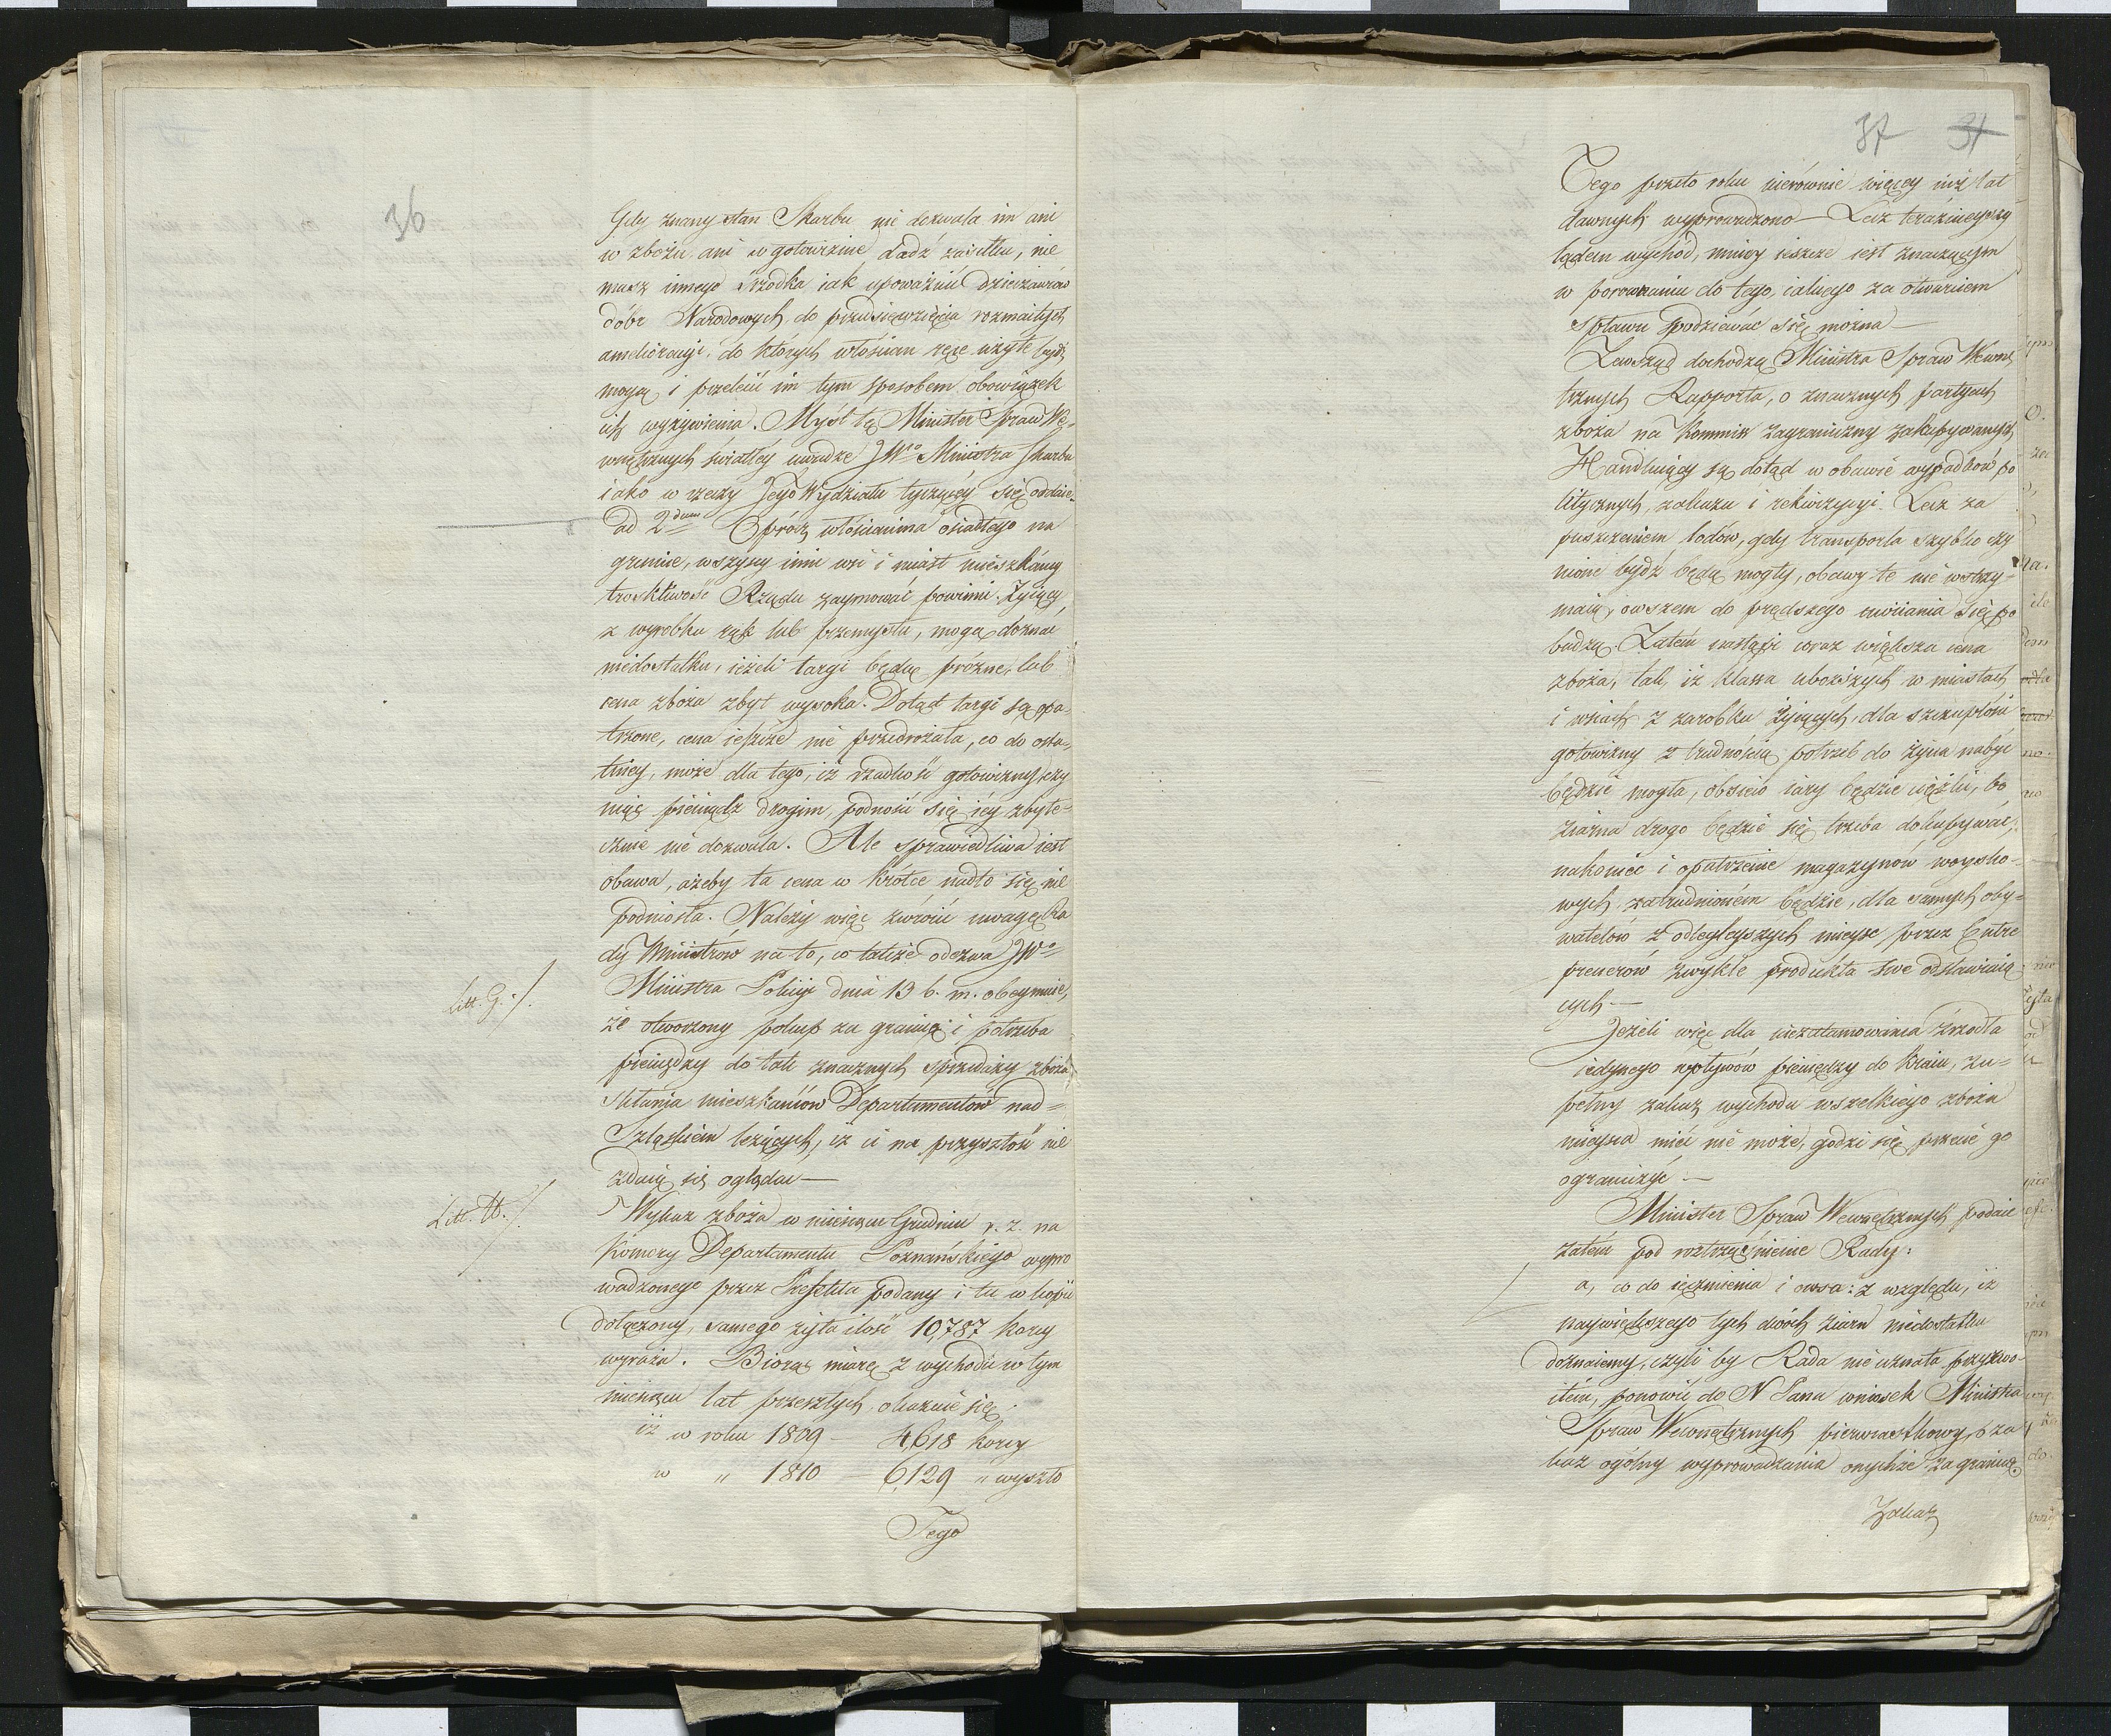 36
Gdy znany stan Skarbu nie dozwala im ani
w zbożu ani w gotowiznie dadź zasiłku, nie
masz innego środka iak upoważnić Dzierżawców
dóbr Narodowych, do przedsięwzięcia rozmaitych
amelioracyi, do których włościan ręce użyte bydź
mogą i przelać im tym sposobem obowiązek
ich wyżywienia. Myśl tę Minister Spraw We=
wnętrznych światłey uwadze JWo Ministra Skarbu
iako w rzeczy Jego Wydziału tyczącey się oddaie.
ad 2dum Oprócz włościanina osiadłego na
gruncie, wszyscy inni wsi i miast mieszkańcy
troskliwość Rządu zaymować powinni. Żyiący
z wyrobku rąk lub przemysłu, mogą doznać
niedostatku, ieżeli targi będą prożne, lub
cena zboża zbyt wysoka. Dotąd targi są opa=
trzone, cena ieszcze nie przedrożała, co do osta=
tniey, może dla tego, iż rzadkość gotowizny czy
niąc pieniądz drogim, podnosić się iey zbyte=
cznie nie dozwala. Ale sprawiedliwa iest
obawa, ażeby ta cena w krótce nadto się nie
podniosła. Należy więc zwrócić uwagę Ra
dy Ministrów na to, co także odezwa JWo
Litt. G. /.
Ministra Policyi dnia 13 b. m. obeymuie,
że otworzony pokup za granicę i potrzeba
pieniędzy do tak znacznych sprzedaży zboża
skłania mieszkańców Departamentów nad=
Szląskiem leżących, iż ci na przyszłość nie
zdaią się oglądać —
Litt. H. /.
Wykaz zboża w miesiącu Grudniu r. z. na
Komory Departamentu Poznańskiego wypro
wadzonego przez Prefekta podany i tu w kopii
dołączony, samego żyta ilość 10,787 korcy
wyraża. Biorąc miarę z wychodu w tym
miesiącu lat przeszłych okazuie się.
iż w roku 1809 — 4,618 korcy
w " 1810 6,129 " wyszło
Tego
37 31
Tego przeto roku nierównie więcey niż lat
dawnych wyprowadzono — Lecz teraźnieyszy
lądem wychód, mniey ieszcze iest znaczącym
w porownaniu do tego, iakiego za otwarciem
spławu spodziewać się można —
Zewsząd dochodzą Ministra Spraw Wewnę
trznych Rapporta, o znacznych partyach
zboża na kommis zagraniczny zakupywanych
Handluiący są dotąd w obawie wypadków po
litycznych, zakazu i rekwizycyi. Lecz za
puszczeniem lodów, gdy transporta szybko czy
nione bydź będą mogły, obawy te nie wstrzy=
maią, owszem do prędszego uwiiania się po
budzą. Zatem nastąpi coraz większa cena
zboża, tak, iż klassa uboższych w miastach
i wsiach z zarobku żyiących, dla szczupłości
gotowizny z trudnością potrzeb do życia nabyć
będzie mogła, obsiew iary będzie ciężki, bo
ziarna drogo będzie się trzeba dokupywać,
nakoniec i opatrzenie magazynów woysko=
wych, zatrudnionem będzie, dla samych oby=
watelów z odlegleyszych mieysc przez Entre
preneròw zwykle produkta swe odstawiaią
cych. —
Jeżeli więc dla niezatamowania źrzodła
iedynego wpływów pieniędzy do kraiu, zu=
pełny zakaz wychodu wszelkiego zboża
mieysca mieć nie może, godzi się przecie go
ograniczyć. —
Minister Spraw Wewnętrznych podaie
zatem pod roztrząśnienie Rady:
a, co do ięczmienia i owsa: z względu, iż
naywiększego tych dwóch ziarn niedostatku
doznaiemy, czyli by Rada nie uznała przyzwo=
item, ponowić do N Pana wniosek Ministra
Spraw Wewnętrznych pierwiastkowy, o za
kaz ogólny wyprowadzania onychże za granicę.
Zakaz